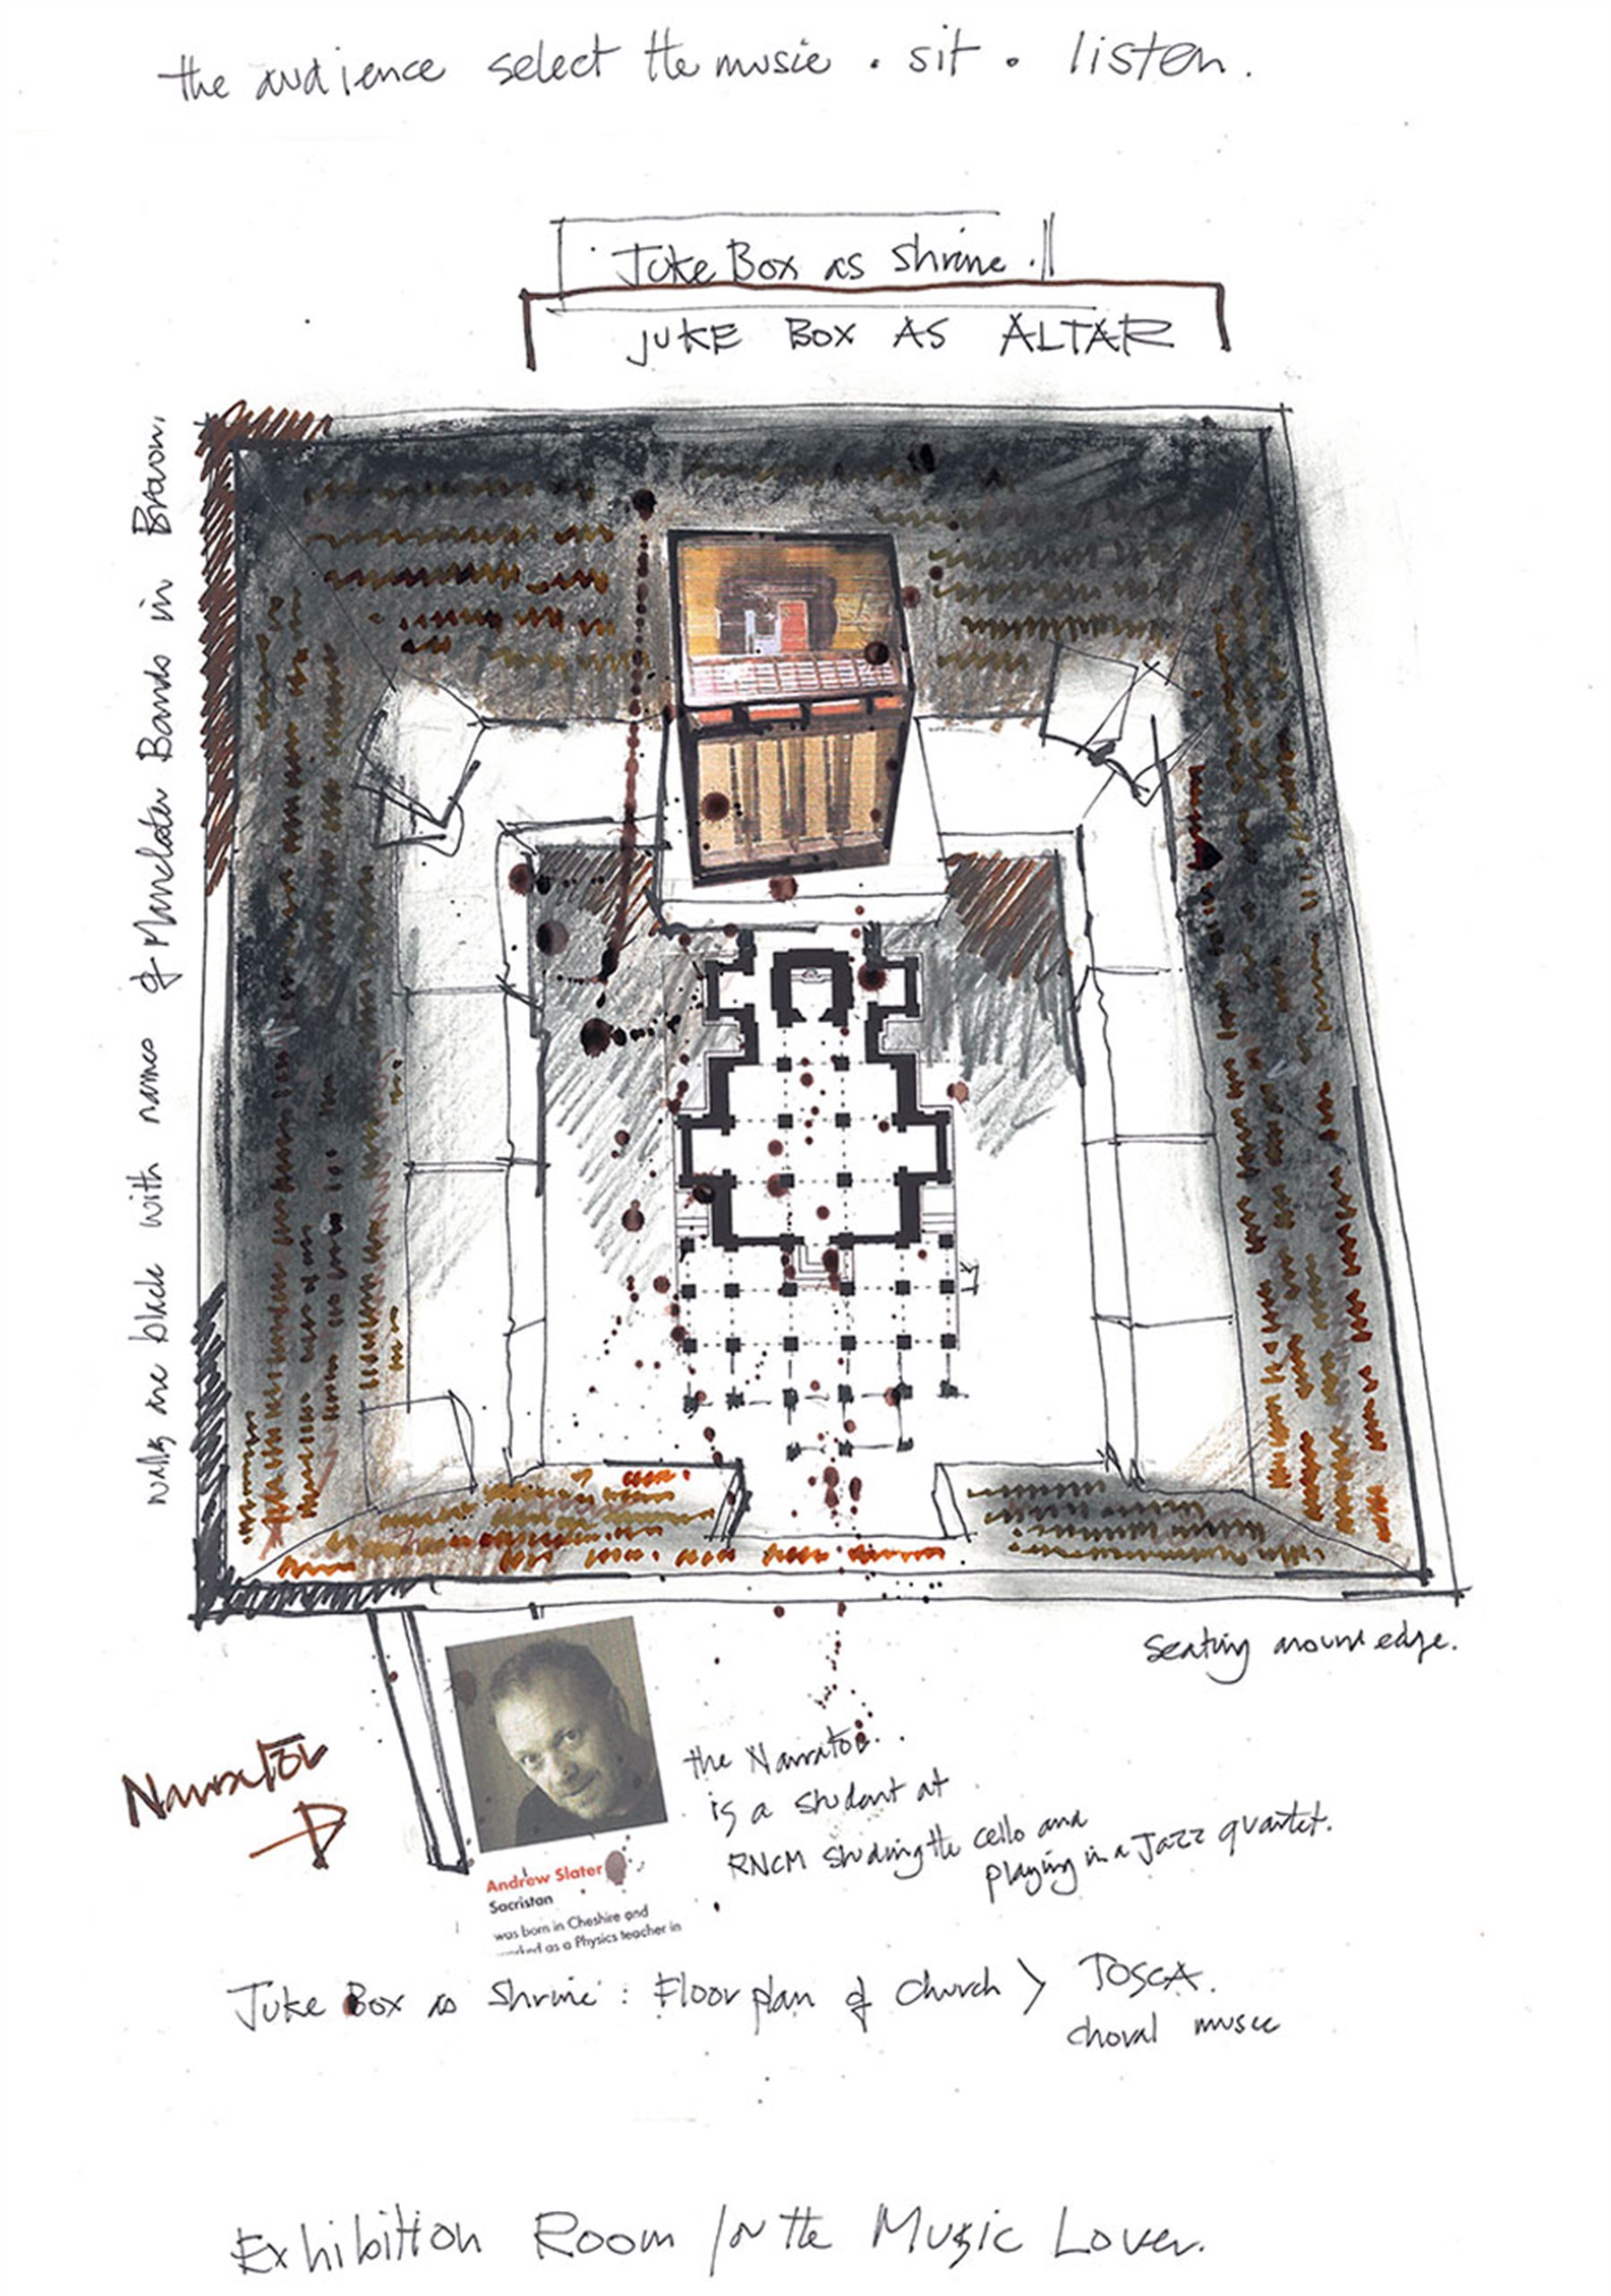 the audience select the music . sit . listen.
Juke Box as Shrine.
JUKE BOX AS ALTAR
walls are black with names of Manchester Bands in Brown.
Seating around edge.
Narrator
the Narrator..
is a student at
RNCM studing the cello and
playing in a Jazz quartet.
Andrew Slater
Sacristan
was born in Cheshire and
worked as a Physics teacher in
Juke Box as Shrine : Floor plan of Church > TOSCA.
choral music
Exhibition Room for the Music Lover.